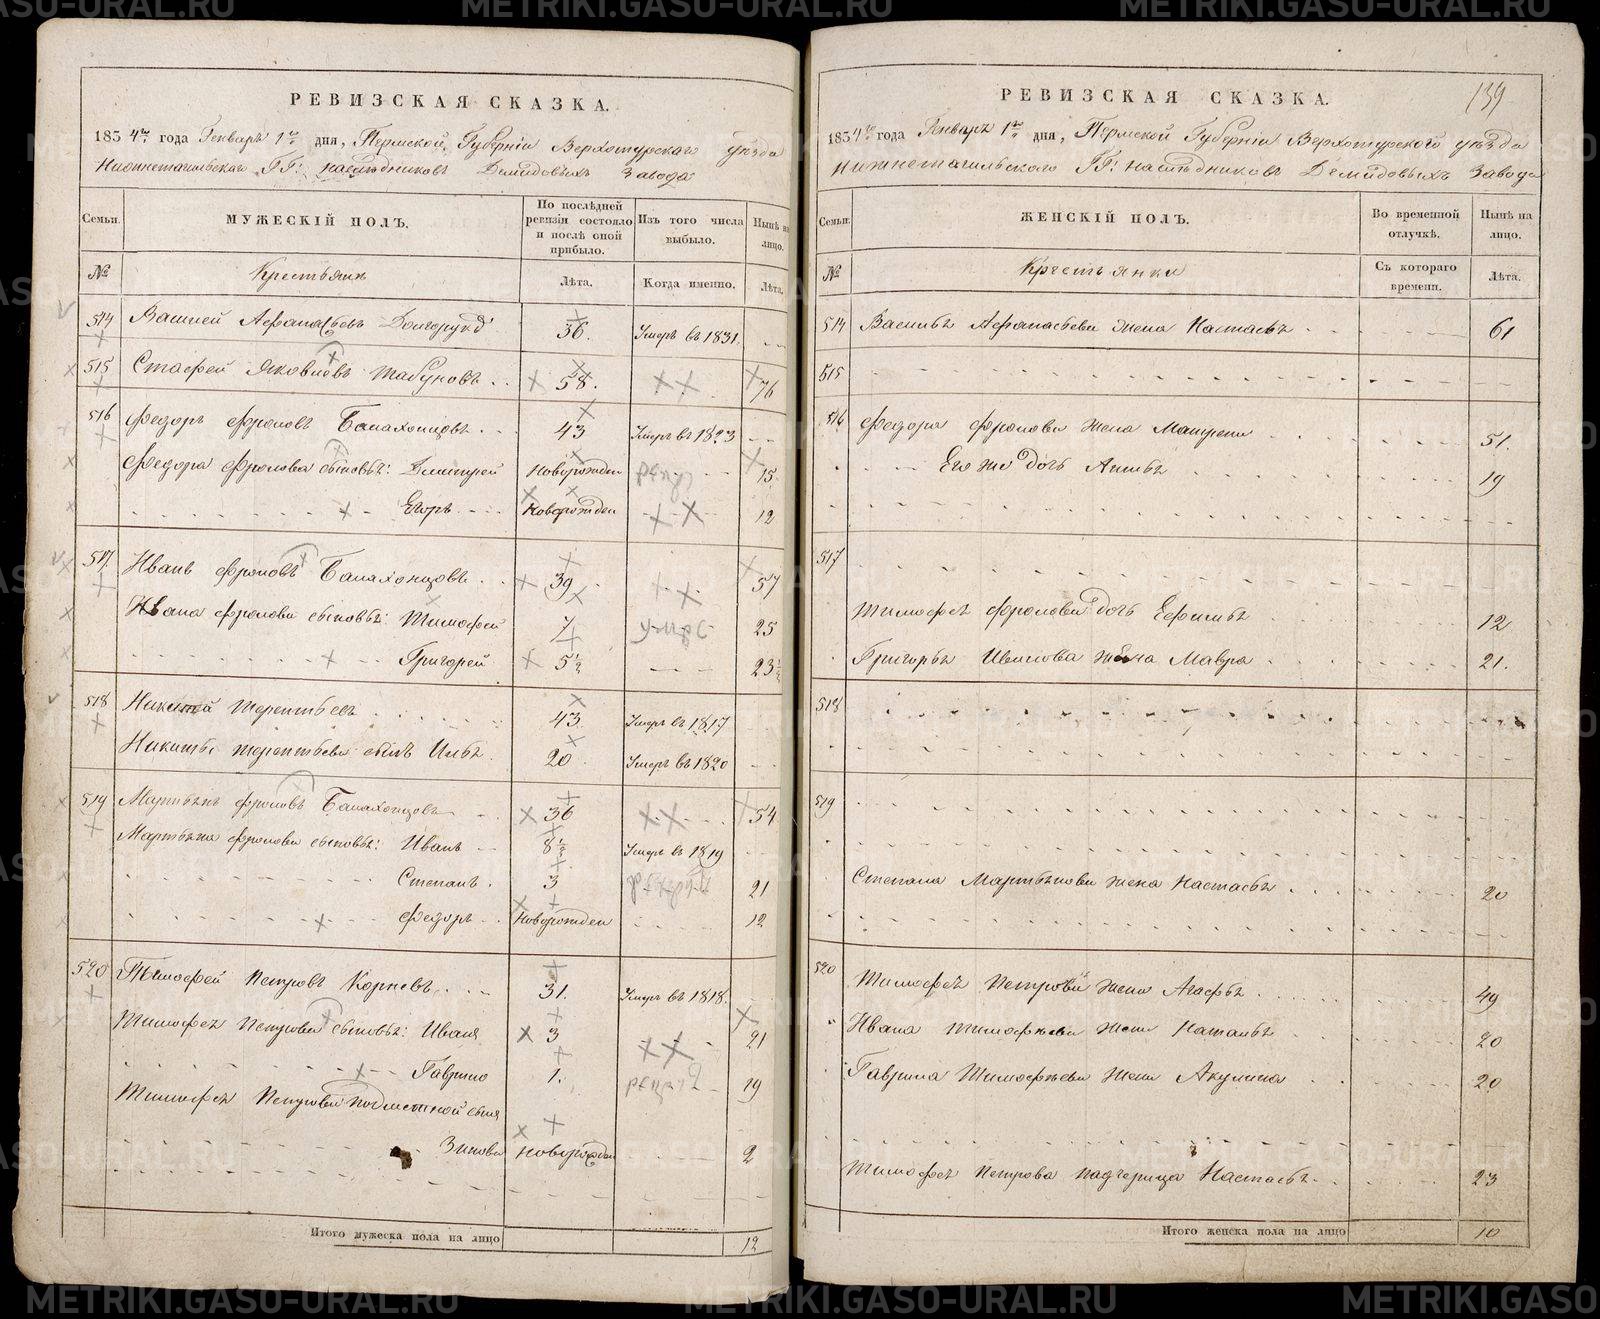 РЕВИЗСКАЯ СКАЗКА.
1834го года Генваря 1го дня, Пермской Губернiи Верхотурскаго уѣзда
Нижнетагильскаго ГГ: наслѣдниковъ Демидовыхъ Завода
Семьи. МУЖЕСКIЙ ПОЛЪ. По послѣдней ревизiи состояло и послѣ оной прибыло. Изъ того числа выбыло. Нынѣ на лицо.
№ Крестьяне Лѣта. Когда именно. Лѣта.
514 Василей Афанасьевъ 36. Умеръ въ 1831.
515 Стафей Яковлевъ Табуновъ 58. 76
516 Федоръ Фроловъ Балахонцовъ 43 Умеръ въ 1823
Федора Фролова сыновья: Дмитрей Новорожден 15
Егоръ Новорожден 12
517 Иванъ Фроловъ Балахонцовъ 39 57
Ивана Фролова сыновья: Тимофей 7 25
Григорей 5½ 23½
518 Никита Терентьевъ 43 Умеръ въ 1817
Никиты Терентьева сынъ Илья 20 Умеръ въ 1820
519 Мартынъ Фроловъ Балахонцовъ 36 54
Мартына Фролова сыновья: Иванъ 8½ Умеръ въ 1819
Степанъ. 3 21
Федоръ Новорожден 12
520 Тимофей Петровъ Корневъ 31. Умеръ въ 1818.
Тимофея Петрова сыновья: Иванъ 3 21
Гаврило 1. 19
Тимофея Петрова сынъ
Зиновей Новорожден 2
Итого мужеска пола на лицо 12
139
РЕВИЗСКАЯ СКАЗКА.
1834го года Генваря 1го дня, Пермской Губернiи Верхотурскаго уѣзда
Нижнетагильскаго ГГ: наслѣдниковъ Демидовыхъ Завода
Семьи. ЖЕНСКIЙ ПОЛЪ. Во временной отлучкѣ. Нынѣ на лицо.
№ Крестьянки Съ котораго времени. Лѣта.
514 Василья Афанасьева жена Настасья 61
515
516 Федора Фролова жена Матрена 51.
Его же дочь Анисья 19
517
Тимофея Фролова дочь Ефимья 12
Григорья Иванова жена Мавра 21.
518
519
Степана Мартынова жена Настасья 20
520 Тимофея Петрова жена Агафья 49
Ивана Тимофеева жена Наталья 20
Гаврила Тимофеева жена Акулина 20
Тимофея Петрова падчерица Настасья 23
Итого женска пола на лицо 10
METRIKI.GASO-URAL.RU